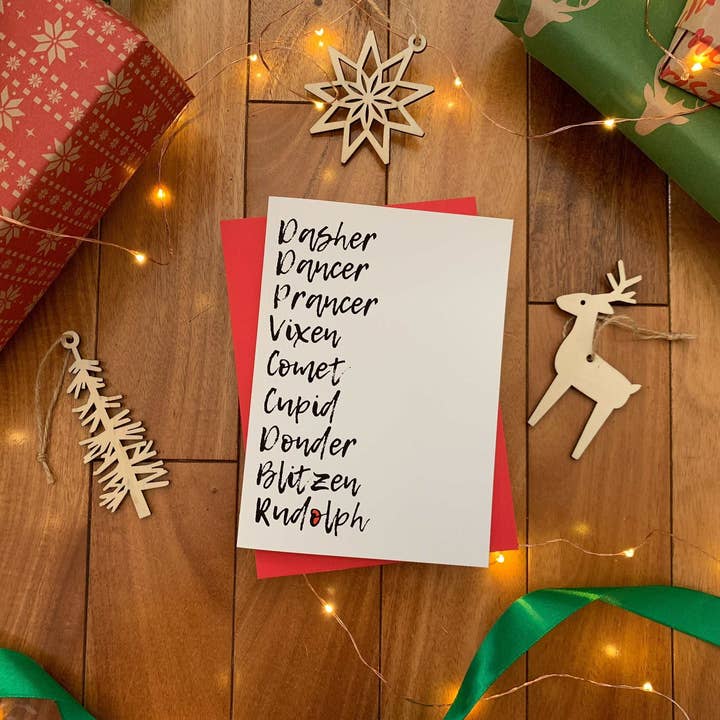 Dasher
Dancer
Prancer
Vixen
Comet
Cupid
Donder
Blitzen
Rudolph